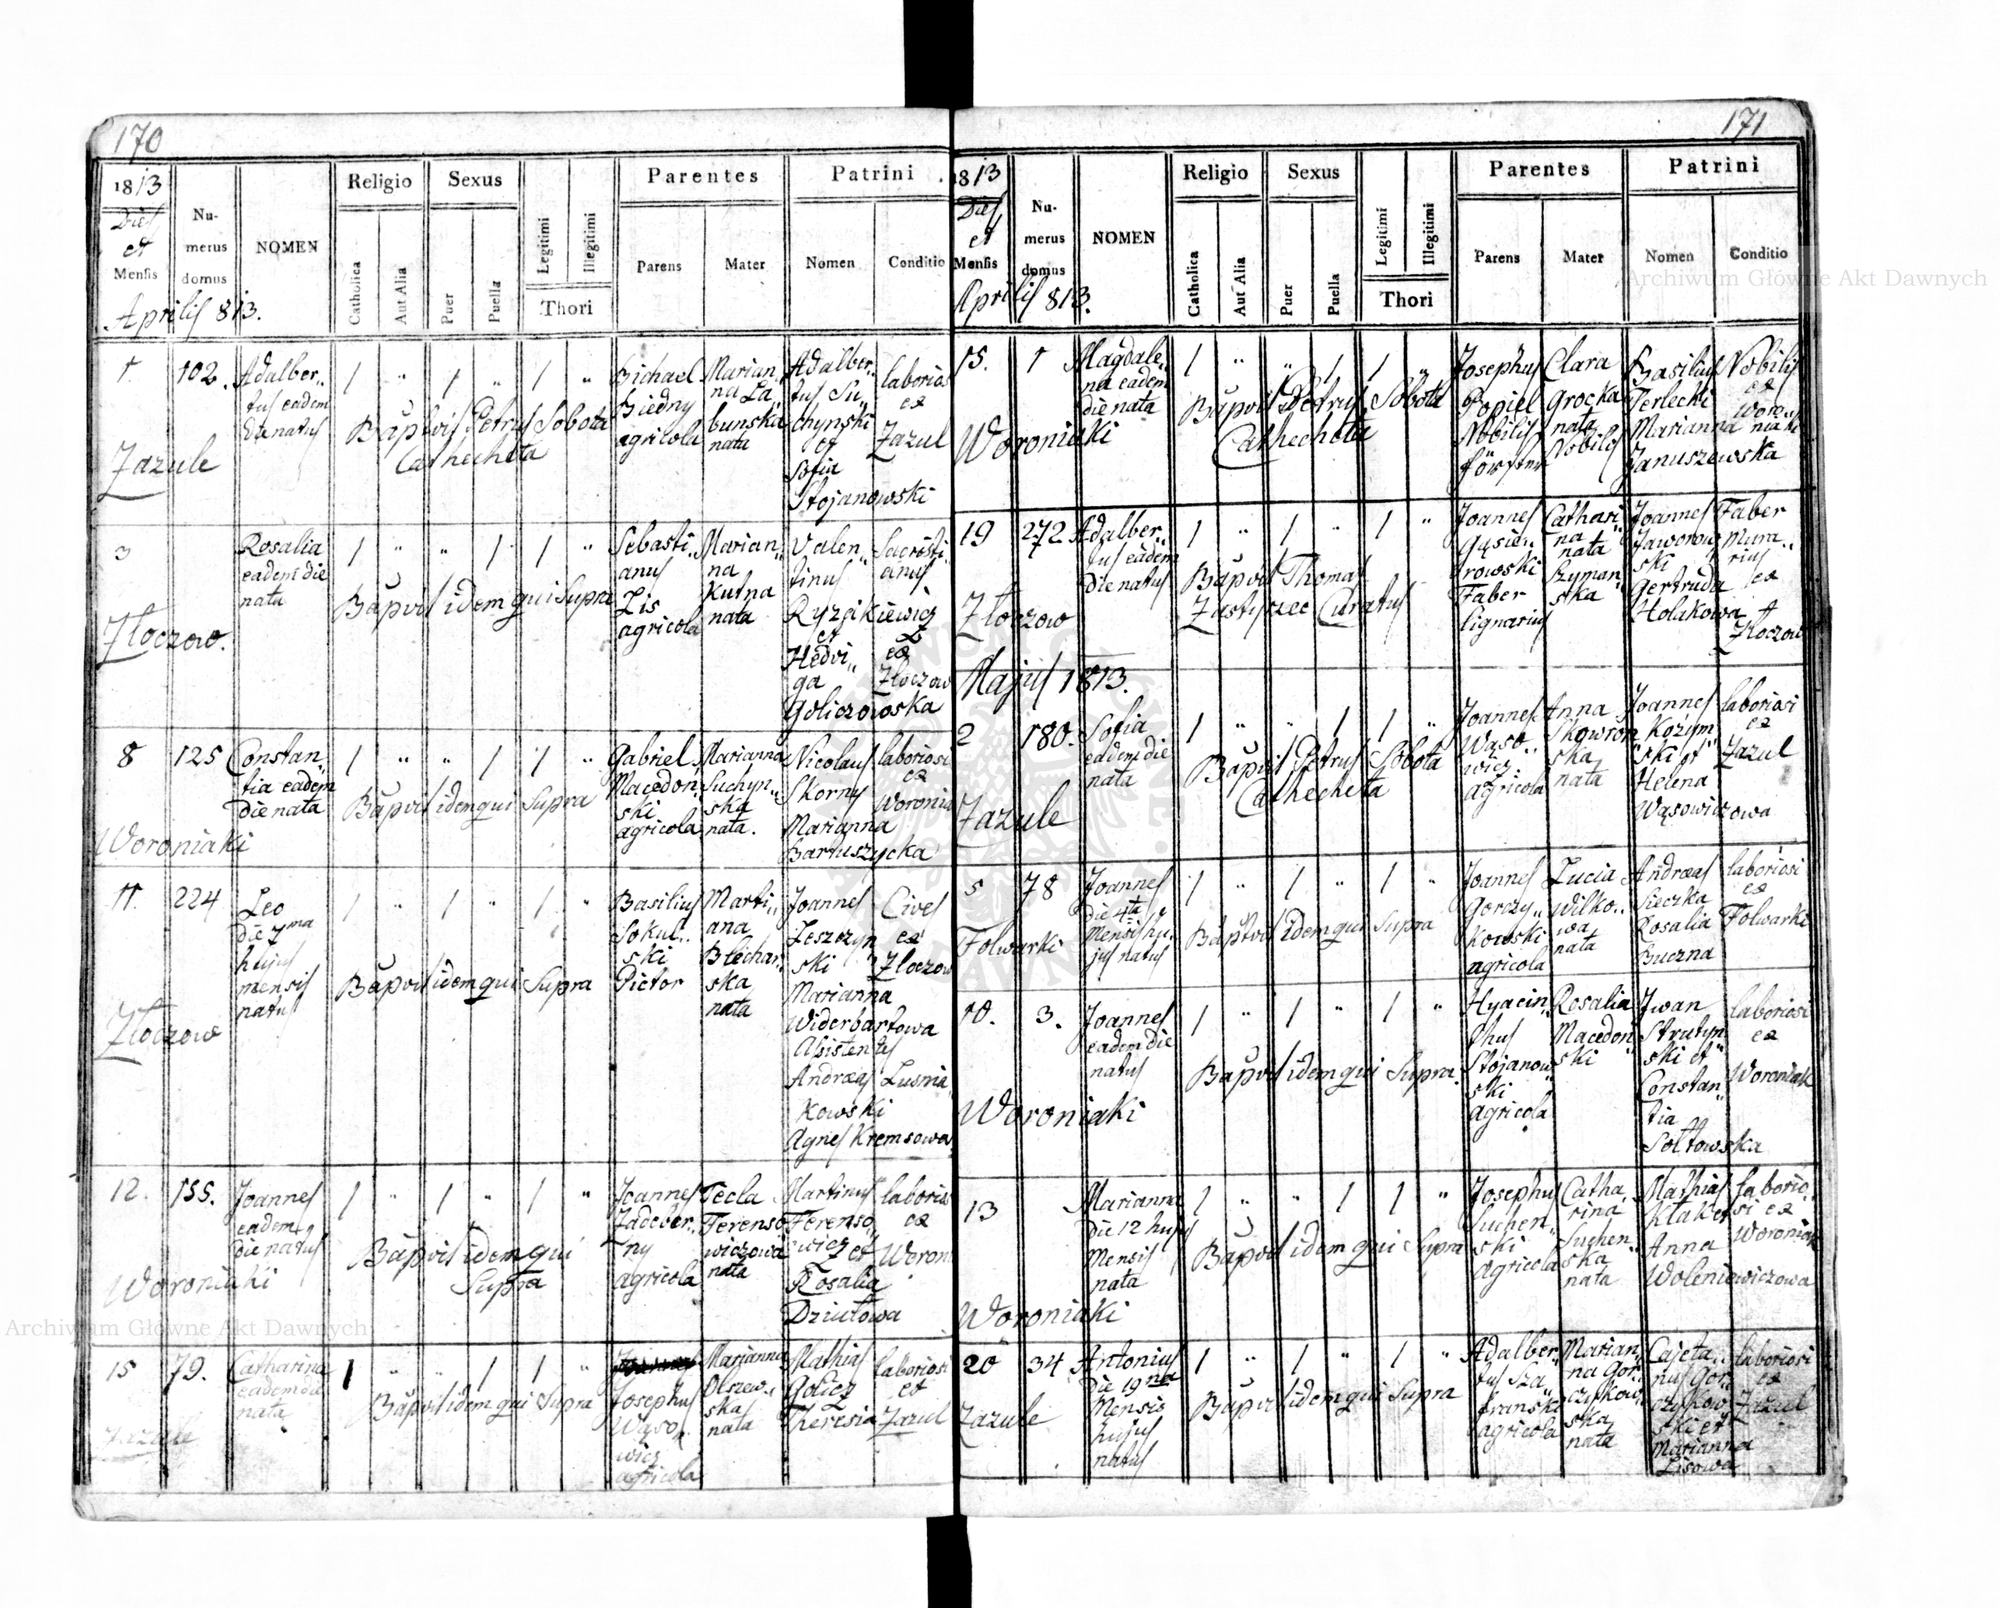 170
1813
Dies
et
Mensis
Aprilis 813.
Nu-
merus
domus
NOMEN
Religio
Catholica
Aut Alia
Sexus
Puer
Puella
Legitimi
Illegitimi
Thori
Parentes
Parens
Mater
Patrini
Nomen
Conditio
1. 102. Adalber„
tus eadem
die natus
Zazule
Bapvit Petrus Sobota
Cathecheta
Michael
Biedny
agricola
Marian„
na La„
bunska
nata
Adalber„
tus Su„
chynski
et
Sofia
Stojanowski
laborios
ex
Zazul
3
Rosalia
eadem die
nata
Złoczow.
Bapvit idem qui Supra
Sebasti„
anus
Lis
agricola
Marian„
na
Kutna
nata
Valen„
tinus
Ryzikiewicz
et
Hedvi„
ga
Goliczowska
Sacristi„
anus
ex
Złoczow
8 125 Constan„
tia eadem
die nata
Woroniaki
Bapvit idem qui Supra
Gabriel
Macedon„
ski
agricola
Marianna
Suchyn„
ska
nata.
Nicolaus
Skorny
Marianna
Bartuszycka
laboriosi
ex
Woronia
11. 224 Leo
die 7ma
hujus
mensis
natus
Złoczow
Bapvit idem qui Supra
Basilius
Sokul„
ski
Pictor
Marti„
ana
Blechar„
ska
nata
Joannes
Leszczyn„
ski
Marianna
Widerbartowa
Assistentes
Andreas Lusnia„
kowski
Agnes Kremsowa
Cives
ex
Złoczow
12. 155. Joannes
eadem
die natus
Woroniaki
Bapvit idem qui
Supra
Joannes
Zadeber„
ny
agricola
Tecla
Ferenso„
wiczowa
nata
Martinus
Ferenso„
wicz et
Rosalia
Dziutowa
laborios
ex
Woroni
15 79. Catharina
eadem die
nata
Zazule
Bapvit idem qui Supra
Josephus
Wąso„
wicz
agricola
Marianna
Olszew„
ska
nata
Mathias
Golicz
Theresia
laboriosi
et
Zazul
171
1813
Dies
et
Mensis
Aprilis 813.
Nu-
merus
domus
NOMEN
Religio
Catholica
Aut Alia
Sexus
Puer
Puella
Legitimi
Illegitimi
Thori
Parentes
Parens
Mater
Patrini
Nomen
Conditio
15. 1 Magdale„
na eadem
die nata
Woroniaki
Bapvit Petrus Sobota
Cathecheta
Josephus
Popiel
Nobilis
förster
Clara
Grocka
nata
Nobilis
Basilius
Terlecki
Marianna
Januszewska
Nobilis
ex
Woro„
niaki
19 272 Adalber„
tus eadem
die natus
Złoczow
Bapvit Thomas
Zastyrzec Curatus
Joannes
Gąsio„
rowski
Faber
lignarius
Cathari„
na
nata
Szyman„
ska
Joannes
Jaworow„
ski
Gertruda
Holakowa
Faber
Mura„
rius
ex
Złoczow
Majus 1813.
2 180. Sofia
eadem die
nata
Zazule
Bapvit Petrus Sobota
Cathecheta
Joannes
Wąso„
wicz
agricola
Anna
Skowron„
ska
nata
Joannes
Kozym„
ski et
Helena
Wąsowiczowa
laboriosi
ex
Zazul
5 78 Joannes
die 4ta
Mensis hu„
jus natus
Folwarki
Bapvit idem qui Supra
Joannes
Gorczy„
kowski
agricola
Lucia
Wilko„
wa
nata
Andreas
Sieczka
Rosalia
Buczna
laboriosi
ex
Folwarki
10. 3. Joannes
eadem die
natus
Woroniaki
Bapvit idem qui Supra.
Hyacin„
thus
Stojanow„
ski
agricola
Rosalia
Macedon„
ski
Iwan
Strutyn„
ski et
Constan„
tia
Sołtowska
laboriosi
ex
Woroniak
13
Marianna
die 12 hujus
Mensis
nata
Woroniaki
Bapvit idem qui Supra
Josephus
Suchen„
ski
agricola
Catha„
rina
Suchen„
ska
nata
Mathias
Kłak et
Anna
Woleniewiczowa
laborio„
si ex
Woroniak
20 34 Antonius
die 19na
Mensis
hujus
natus
Zazule
Bapvit idem qui Supra
Adalber„
tus Sza„
franski
agricola
Marian„
na Gor„
czykow„
ska
nata
Cajeta„
nus Gor„
czykow„
ski et
Marianna
Lisowa
laboriosi
ex
Zazul
Archiwum Główne Akt Dawnych
Archiwum Główne Akt Dawnych